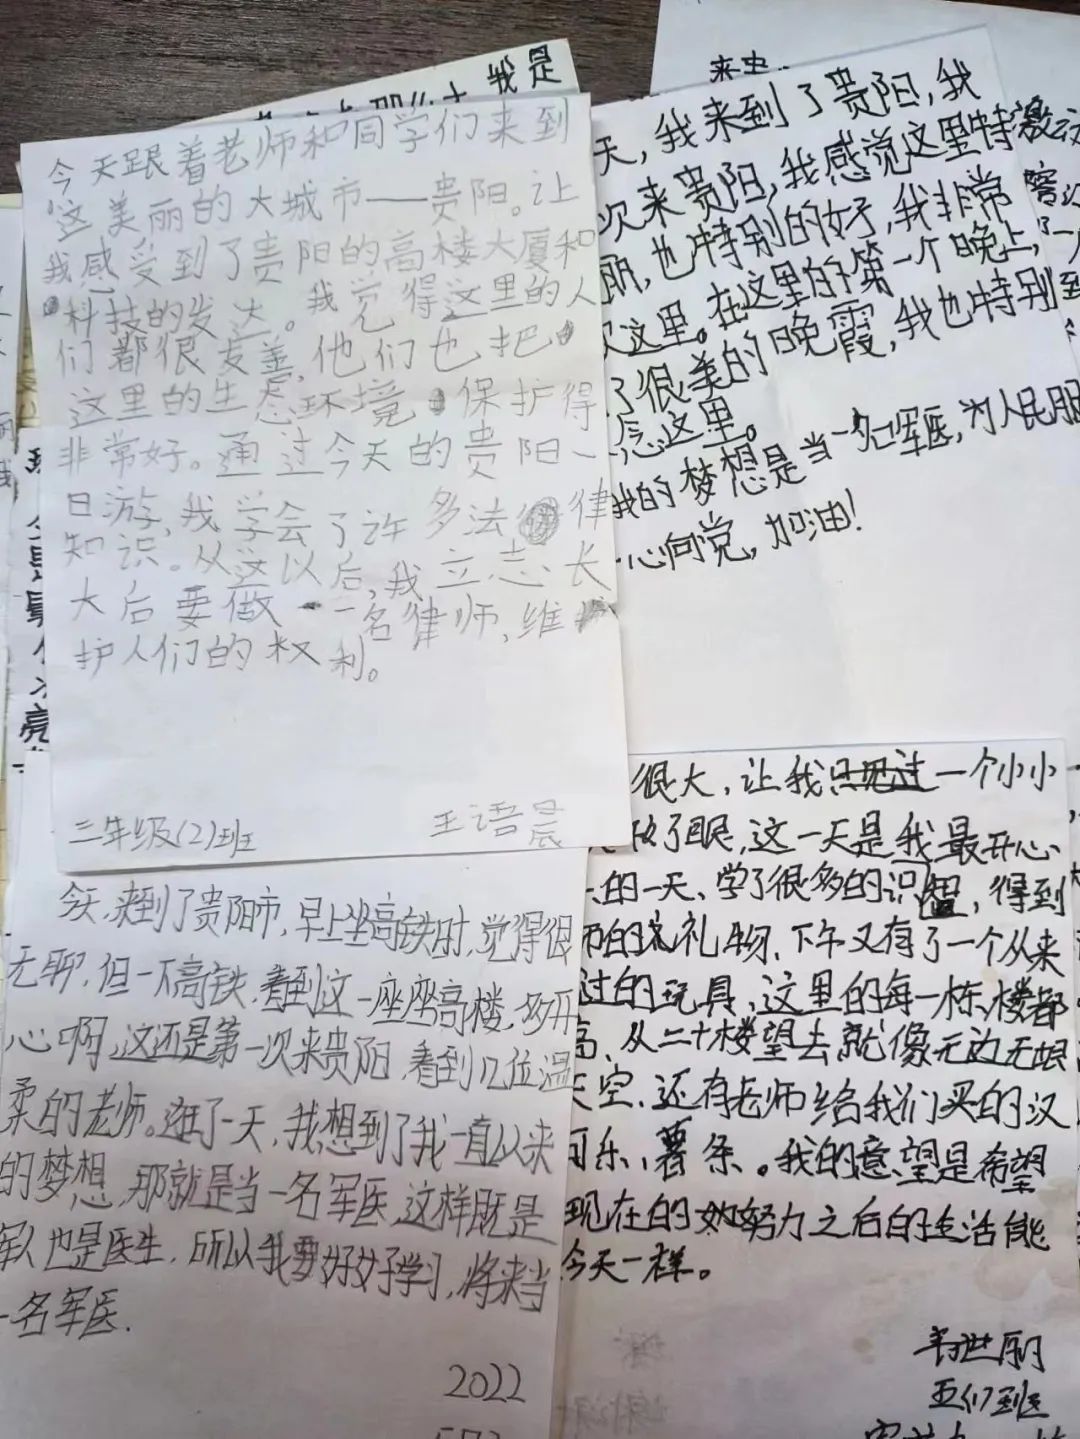 我是
今天跟着老师和同学们来到
这美丽的大城市——贵阳。让
我感受到了贵阳的高楼大厦和
科技的发达。我觉得这里的人
们都很友善，他们也把
这里的生态环境保护得
非常好。通过今天的贵阳一
日游，我学会了许多法律
知识。从这以后，我立志长
大后要做一名律师，维
护人们的权利。
三年级(2)班 王语晨
天，我来到了贵阳，我
次来贵阳，我感觉这里特
丽，也特别的好，我非常
这里。在这里的第一个晚上，
了很美的晚霞，我也特别
这里。
我的梦想是当一名军医，为人民服
心向党，加油！
今天，来到了贵阳市，早上坐高铁时，觉得很
无聊，但一下高铁，看到这一座座高楼，多开
心啊，这还是第一次来贵阳，看到几位温
柔的老师。逛了一天，我想到了我一直以来
的梦想，那就是当一名军医，这样既是
军人也是医生，所以我要好好学习，将来当
一名军医.
2022
很大，让我只见过一个小小
了眼，这一天是我最开心
的一天、学了很多的识，得到
的礼物，下午又有了一个从来
过的玩具，这里的每一栋楼都
高，从二十楼望去就像无边无垠
天空，还有老师给我们买的汉
可乐，薯条。我的意望是希望
现在的努力之后的生活能
今天一样。